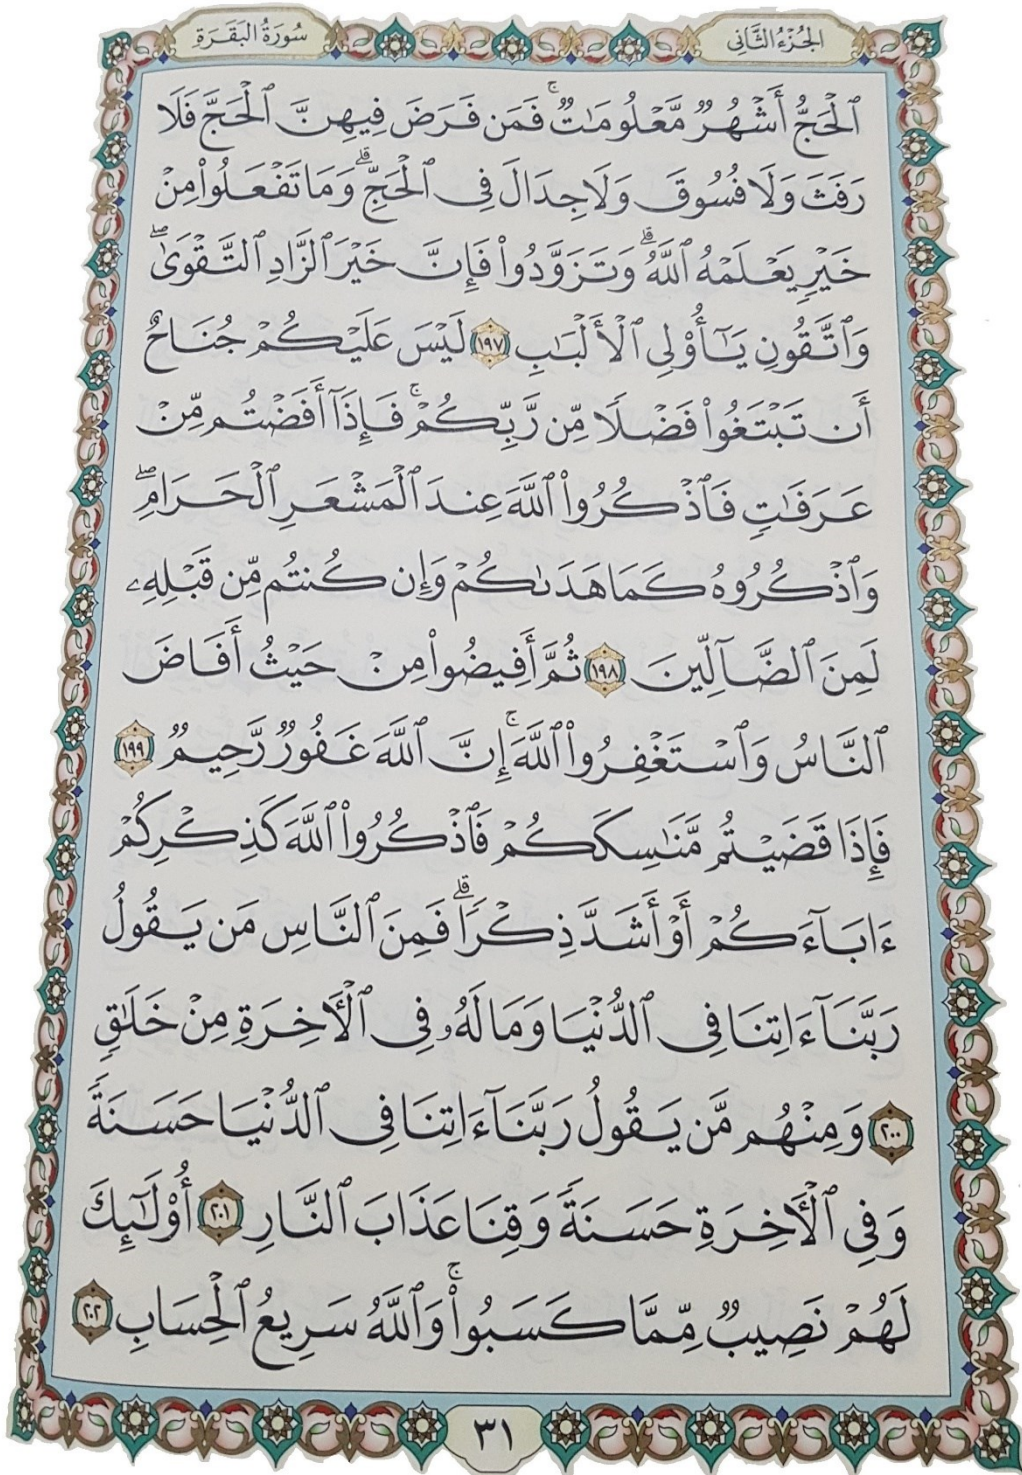 الجُزْءُ الثَّانِي
سُورَةُ البَقَرَةِ
ٱلْحَجُّ أَشْهُرٌ مَّعْلُومَٰتٌ ۚ فَمَن فَرَضَ فِيهِنَّ ٱلْحَجَّ فَلَا
رَفَثَ وَلَا فُسُوقَ وَلَا جِدَالَ فِى ٱلْحَجِّ ۗ وَمَا تَفْعَلُوا۟ مِنْ
خَيْرٍ يَعْلَمْهُ ٱللَّهُ ۗ وَتَزَوَّدُوا۟ فَإِنَّ خَيْرَ ٱلزَّادِ ٱلتَّقْوَىٰ ۖ
وَٱتَّقُونِ يَٰٓأُو۟لِى ٱلْأَلْبَٰبِ ١٩٧ لَيْسَ عَلَيْكُمْ جُنَاحٌ
أَن تَبْتَغُوا۟ فَضْلًا مِّن رَّبِّكُمْ ۚ فَإِذَآ أَفَضْتُم مِّنْ
عَرَفَٰتٍ فَٱذْكُرُوا۟ ٱللَّهَ عِندَ ٱلْمَشْعَرِ ٱلْحَرَامِ ۖ
وَٱذْكُرُوهُ كَمَا هَدَىٰكُمْ وَإِن كُنتُم مِّن قَبْلِهِۦ
لَمِنَ ٱلضَّآلِّينَ ١٩٨ ثُمَّ أَفِيضُوا۟ مِنْ حَيْثُ أَفَاضَ
ٱلنَّاسُ وَٱسْتَغْفِرُوا۟ ٱللَّهَ ۚ إِنَّ ٱللَّهَ غَفُورٌ رَّحِيمٌ ١٩٩
فَإِذَا قَضَيْتُم مَّنَٰسِكَكُمْ فَٱذْكُرُوا۟ ٱللَّهَ كَذِكْرِكُمْ
ءَابَآءَكُمْ أَوْ أَشَدَّ ذِكْرًا ۗ فَمِنَ ٱلنَّاسِ مَن يَقُولُ
رَبَّنَآ ءَاتِنَا فِى ٱلدُّنْيَا وَمَا لَهُۥ فِى ٱلْأَخِرَةِ مِنْ خَلَٰقٍ
٢٠٠ وَمِنْهُم مَّن يَقُولُ رَبَّنَآ ءَاتِنَا فِى ٱلدُّنْيَا حَسَنَةً
وَفِى ٱلْأَخِرَةِ حَسَنَةً وَقِنَا عَذَابَ ٱلنَّارِ ٢٠١ أُو۟لَٰٓئِكَ
لَهُمْ نَصِيبٌ مِّمَّا كَسَبُوا۟ ۚ وَٱللَّهُ سَرِيعُ ٱلْحِسَابِ ٢٠٢
٣١